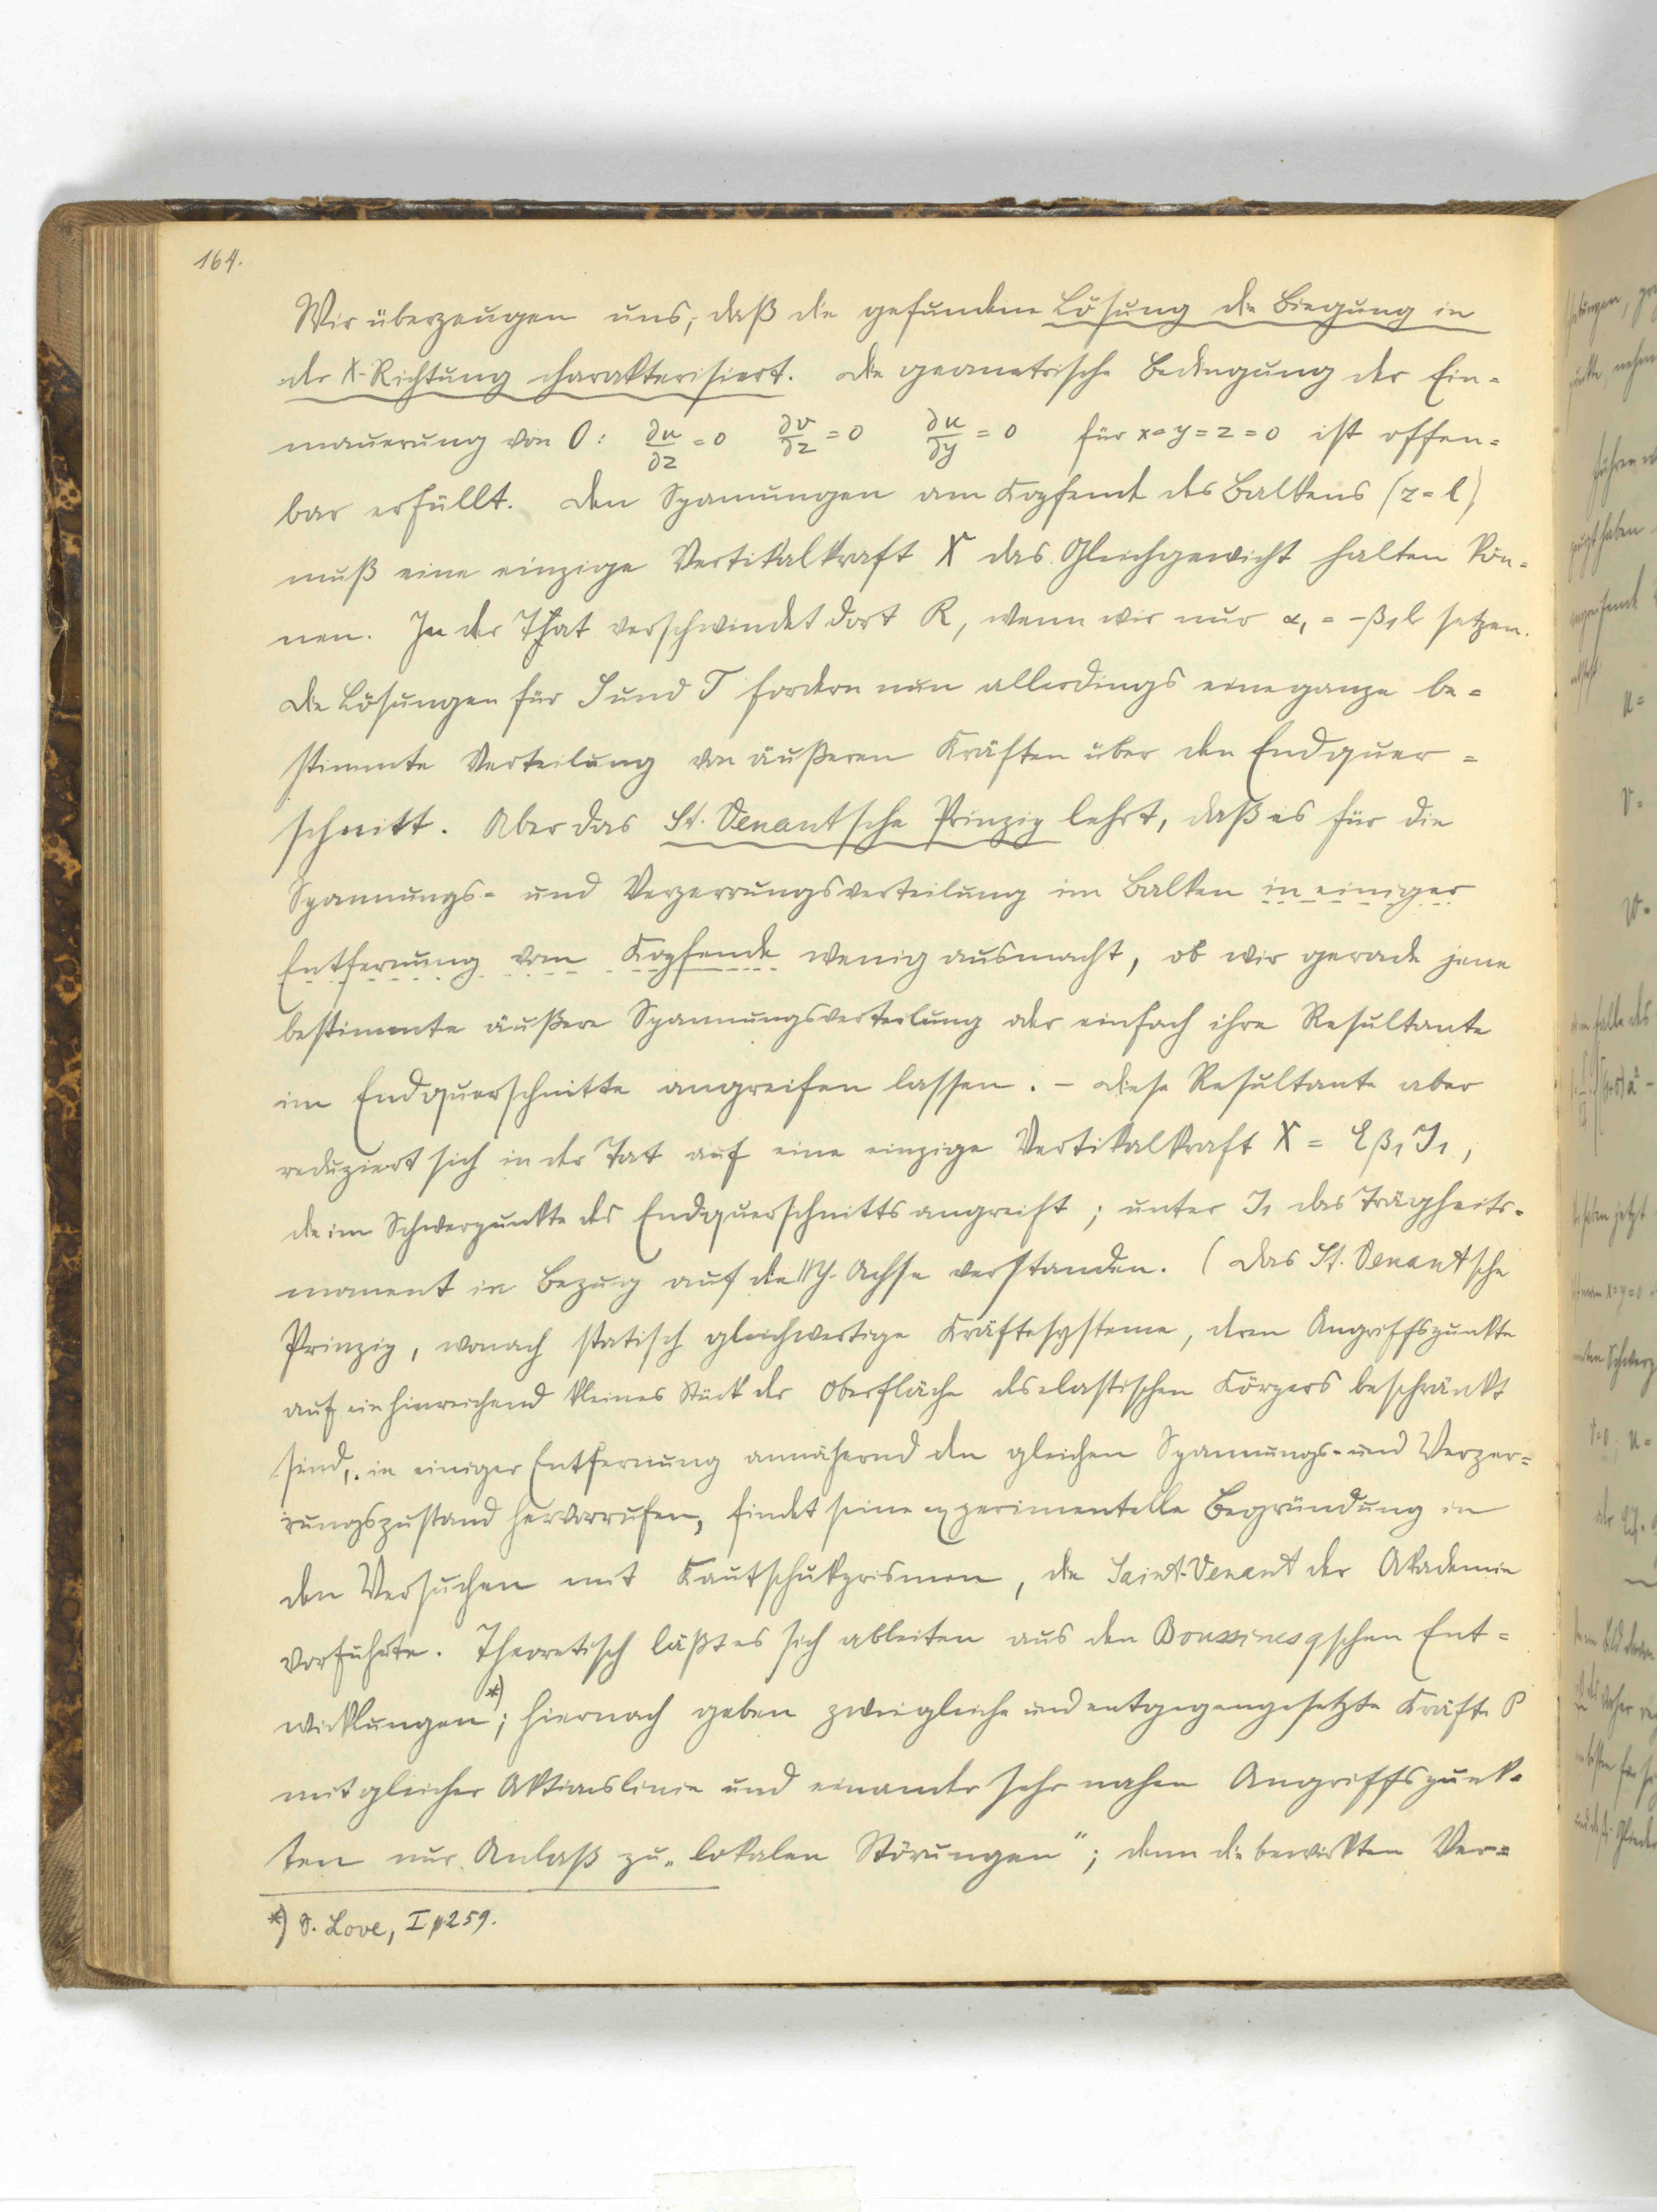 164.
Wir überzeugen uns, daß die gefundene Lösung die Biegung in
der X-Richtung charakterisiert. Die geometrische Bedingung der Ein=
mauerung von O: ∂u/∂z = 0 ∂v/∂z = 0 ∂u/∂y = 0 für x=y=z=0 ist offen=
bar erfüllt. Den Spannungen am Kopfende des Balkens (z=l)
muß eine einzige Vertikalkraft X das Gleichgewicht halten kön=
nen. In der That verschwindet dort R, wenn wir nur α₁ = -β₁l setzen.
Die Lösungen für S und T fordern nun allerdings eine ganze be=
stimmte Verteilung von äußeren Kräften über den Endquer=
schnitt. Aber das St. Venantsche Prinzip lehrt, daß es für die
Spannungs- und Verzerrungsverteilung im Balken in einiger
Entfernung vom Kopfende wenig ausmacht, ob wir gerade jene
bestimmte äußere Spannungsverteilung oder einfach ihre Resultante
im Endquerschnitte angreifen lassen. - Diese Resultante aber
reduziert sich in der Tat auf eine einzige Vertikalkraft X = Eβ₁J₁,
die im Schwerpunkte des Endquerschnitts angreift; unter J₁ das Trägheits=
moment in Bezug auf die Y-Achse verstanden. (Das St. Venantsche
Prinzip, wonach statisch gleichwertige Kräftesysteme, deren Angriffspunkte
auf ein hinreichend kleines Stück der Oberfläche des elastischen Körpers beschränkt
sind, in einiger Entfernung annähernd den gleichen Spannungs- und Verzer=
rungszustand hervorrufen, findet seine experimentelle Begründung in
den Versuchen mit Kautschukprismen, die Saint-Venant der Akademie
vorführte. Theoretisch läßt es sich ableiten aus den Boussinesqschen Ent=
wicklungen*); hiernach geben zwei gleiche und entgegengesetzte Kräfte P
mit gleicher Aktionslinie und einander sehr nahen Angriffspunk=
ten nur Anlaß zu „lokalen Störungen"; denn die bewirkten Ver=
*) S. Love, I p 259.